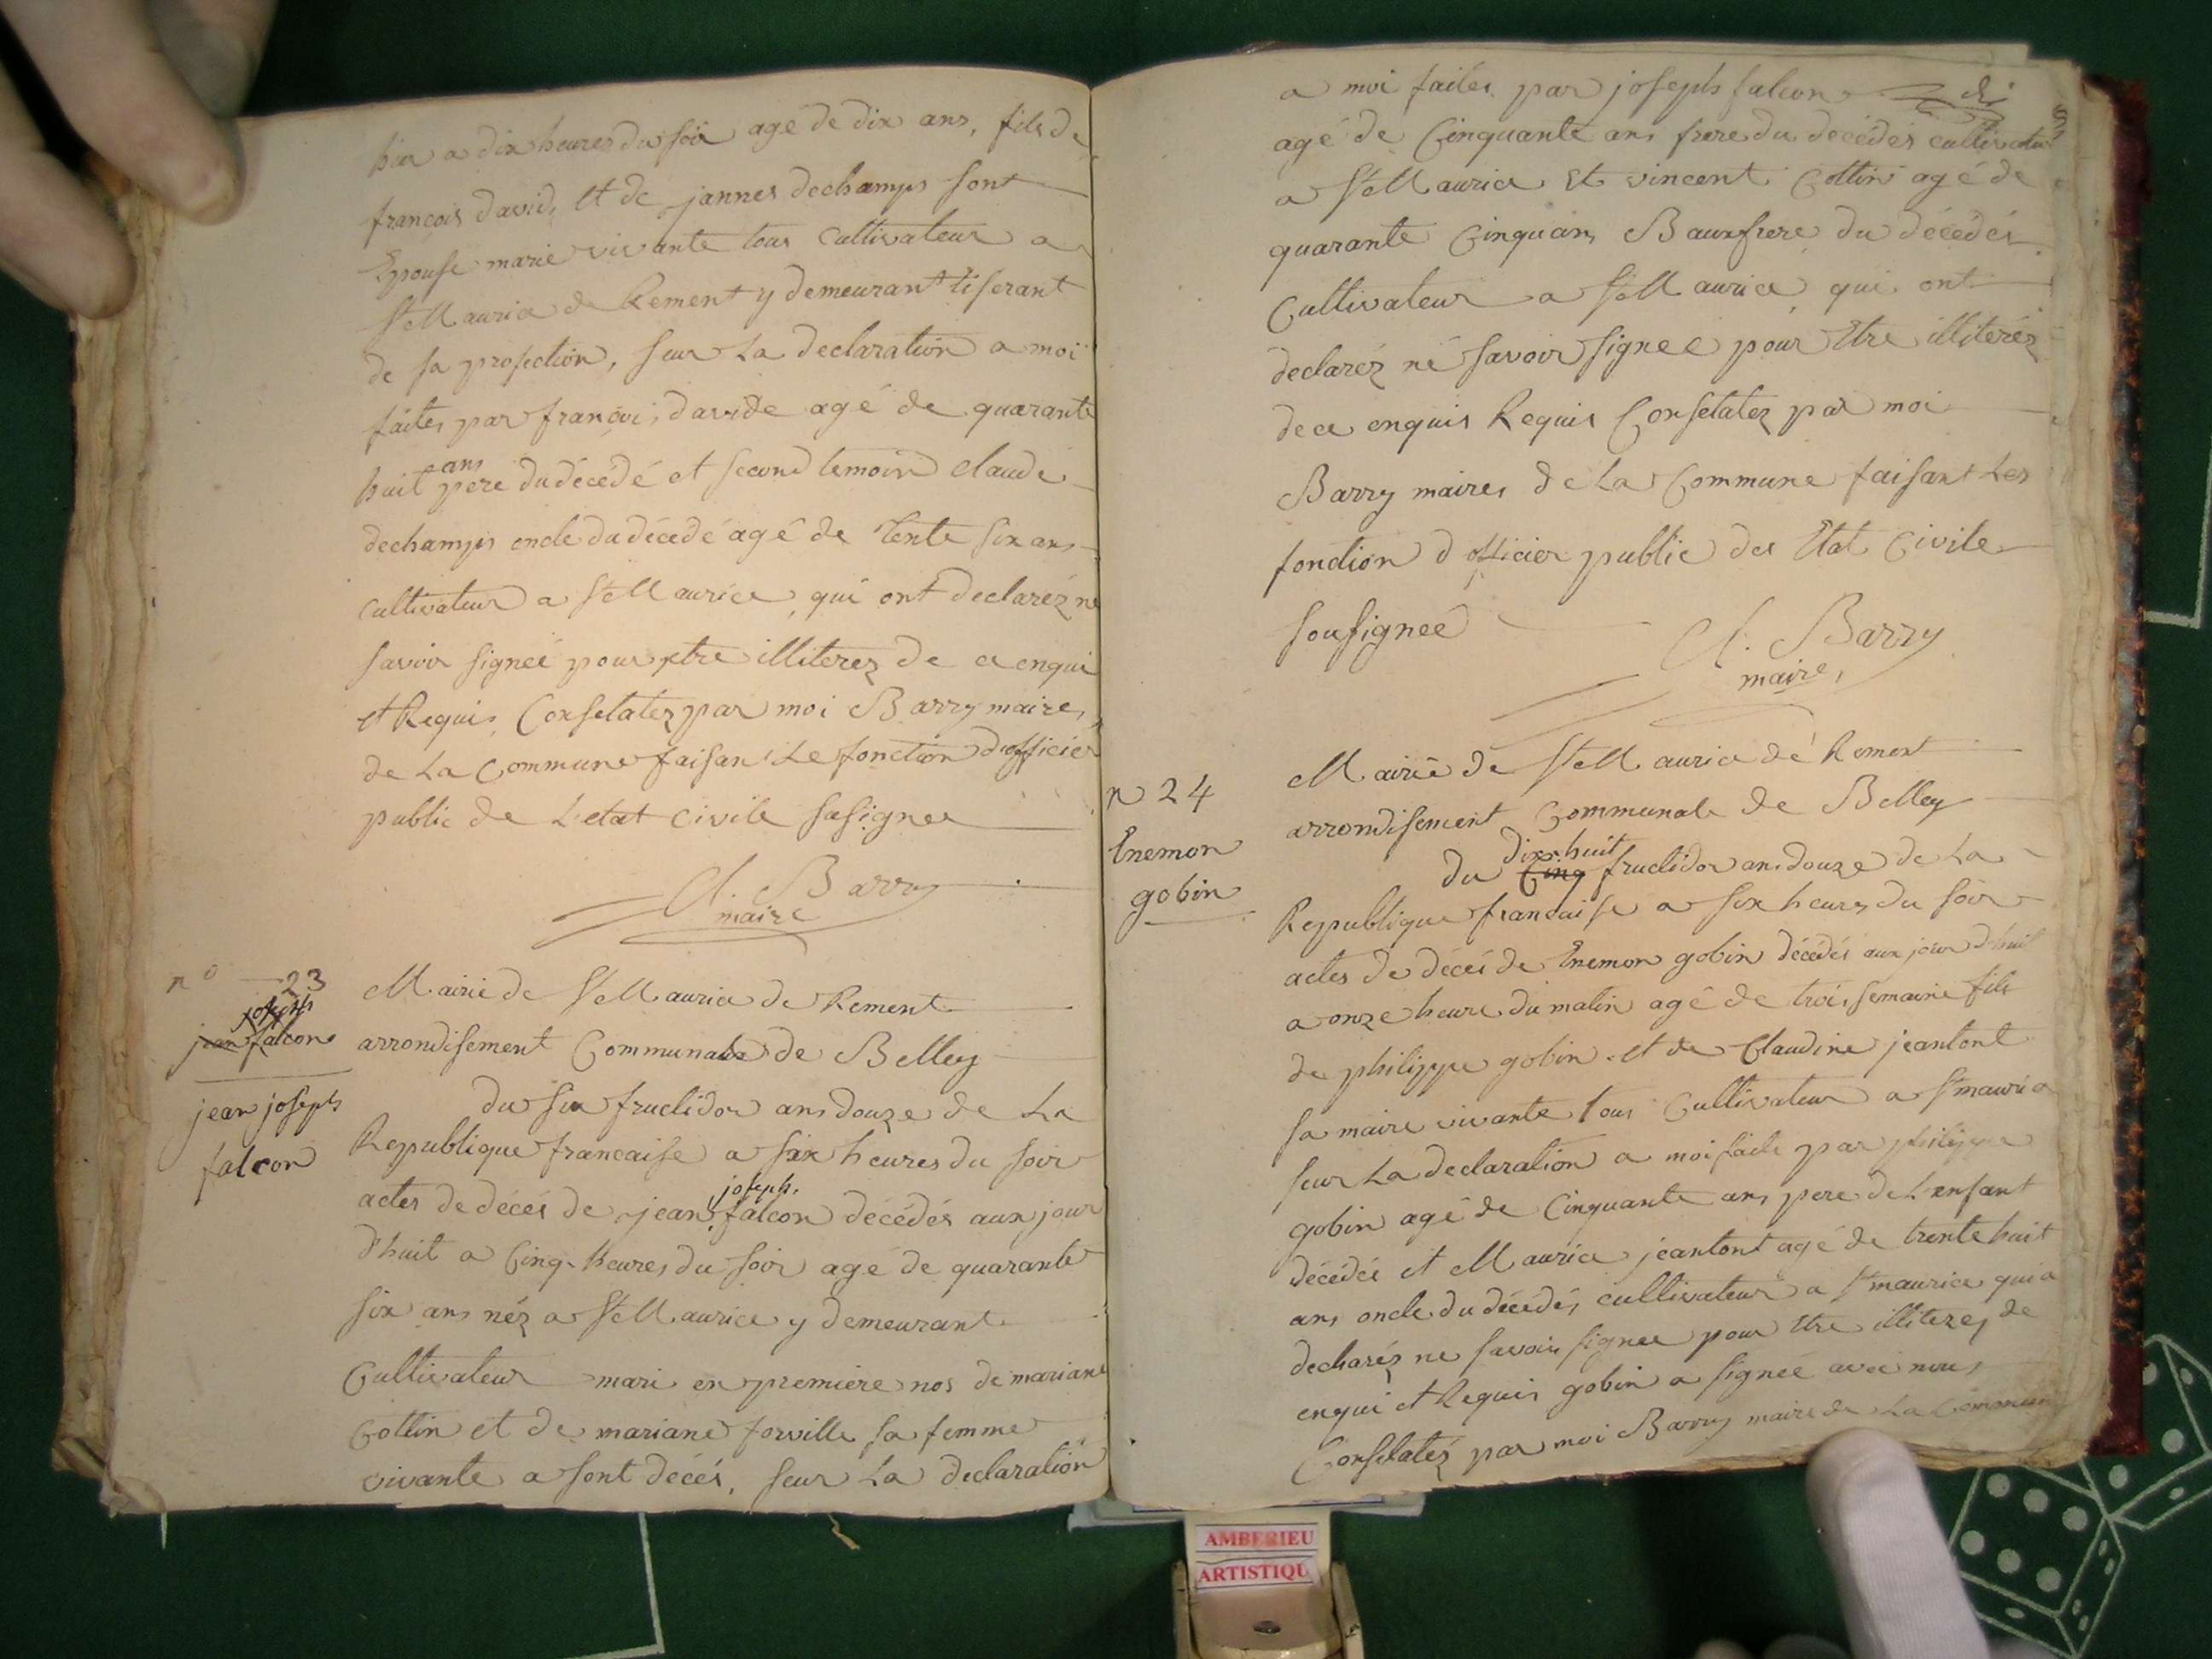 hier a dix heures du soir agé de dix ans, fils de
françois david, et de jannes dechamps sont
Epouse marie vivante tous Cultivateur a
St Maurice de Rement y demeurant tiserant
de sa profection, seur La declaration a moi
faites par françois, davide agé de quarante
ans
huit pere du décédé et second temoin Claude
dechamps oncle du décedé agé de tente six ans
Cultivateur a St Maurice, qui ont declaréz ne
savoir signeé pour etre illiterez de ce enqui
et Requis, Conselatez par moi Barry maire,
de La Commune faisan Le fonction d'officier
public de L'etat Civile sosignee
Cl. Barry
maire
n° 23
joseph
jean falcon
jean joseph
falcon
Mairie de St Maurice de Rement
arrondisement Communale de Belley
du six fructidor ans douze de La
Republique francaise a six heures du soir
joseph.
actes de décés de jean falcon décédés aux jour
d'huit a Cinq heures du soir agé de quarante
six ans néz a St Maurice y demeurant
Cultivateur mari en premiere nos de mariane
Cottin et de mariane forville sa femme
vivante a sont décés, seur La declaration
a moi faites par joseph falcon
agé de Cinquante ans frere du décédés cultivateur
a St Maurice Et vincent Cottin agé de
quarante Cinq ans Beaufrere du décédés
Cultivateur a St Maurice qui ont
declaréz né savoir signeé pour Etre illiteréz
de ce enquis Requis Conselatez par moi
Barry maires de La Commune faisant Les
fonction d officier public des Etat Civile
sousigneé
Cl. Barry
maire,
n 24
Enemon
gobin
Mairie de St Maurice de Rement
arrondisement Communale de Belley
dix huit
du Cinq fructidor ans douze de La
Republique francaise a six heures du soir
actes de décés de Enemon gobin décédés aux jour d'huit
a onze heure du matin agé de trois semaine fils
de philippe gobin et de Claudine jeantont
sa maire vivante tous Cultivateur a St maurice
seur La declaration a moi faite par philippe
gobin agé de Cinquante ans pere de L'enfant
décédés et Maurice jeantont agé de trente huit
ans oncle du décédés, cultivateur a St maurice qui a
declaréz ne savoir signee pour Etre illiteres de
enqui et Requis gobin a signeé avec nous
Conselatéz par moi Barry maire de La Commune